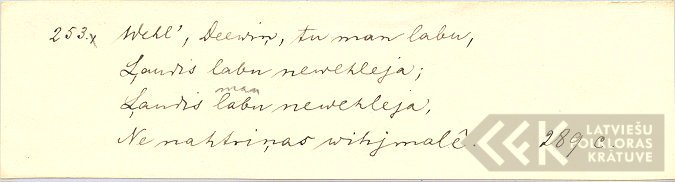 253.x Wehl', Deewiņ, tu man labu,
Ļaudis labu newehleja;
man
Ļaudis labu newehleja,
Ne nahtriņas wihjmalê. 289 c.
LATVIEŠU
FOLKLORAS
KRĀTUVE